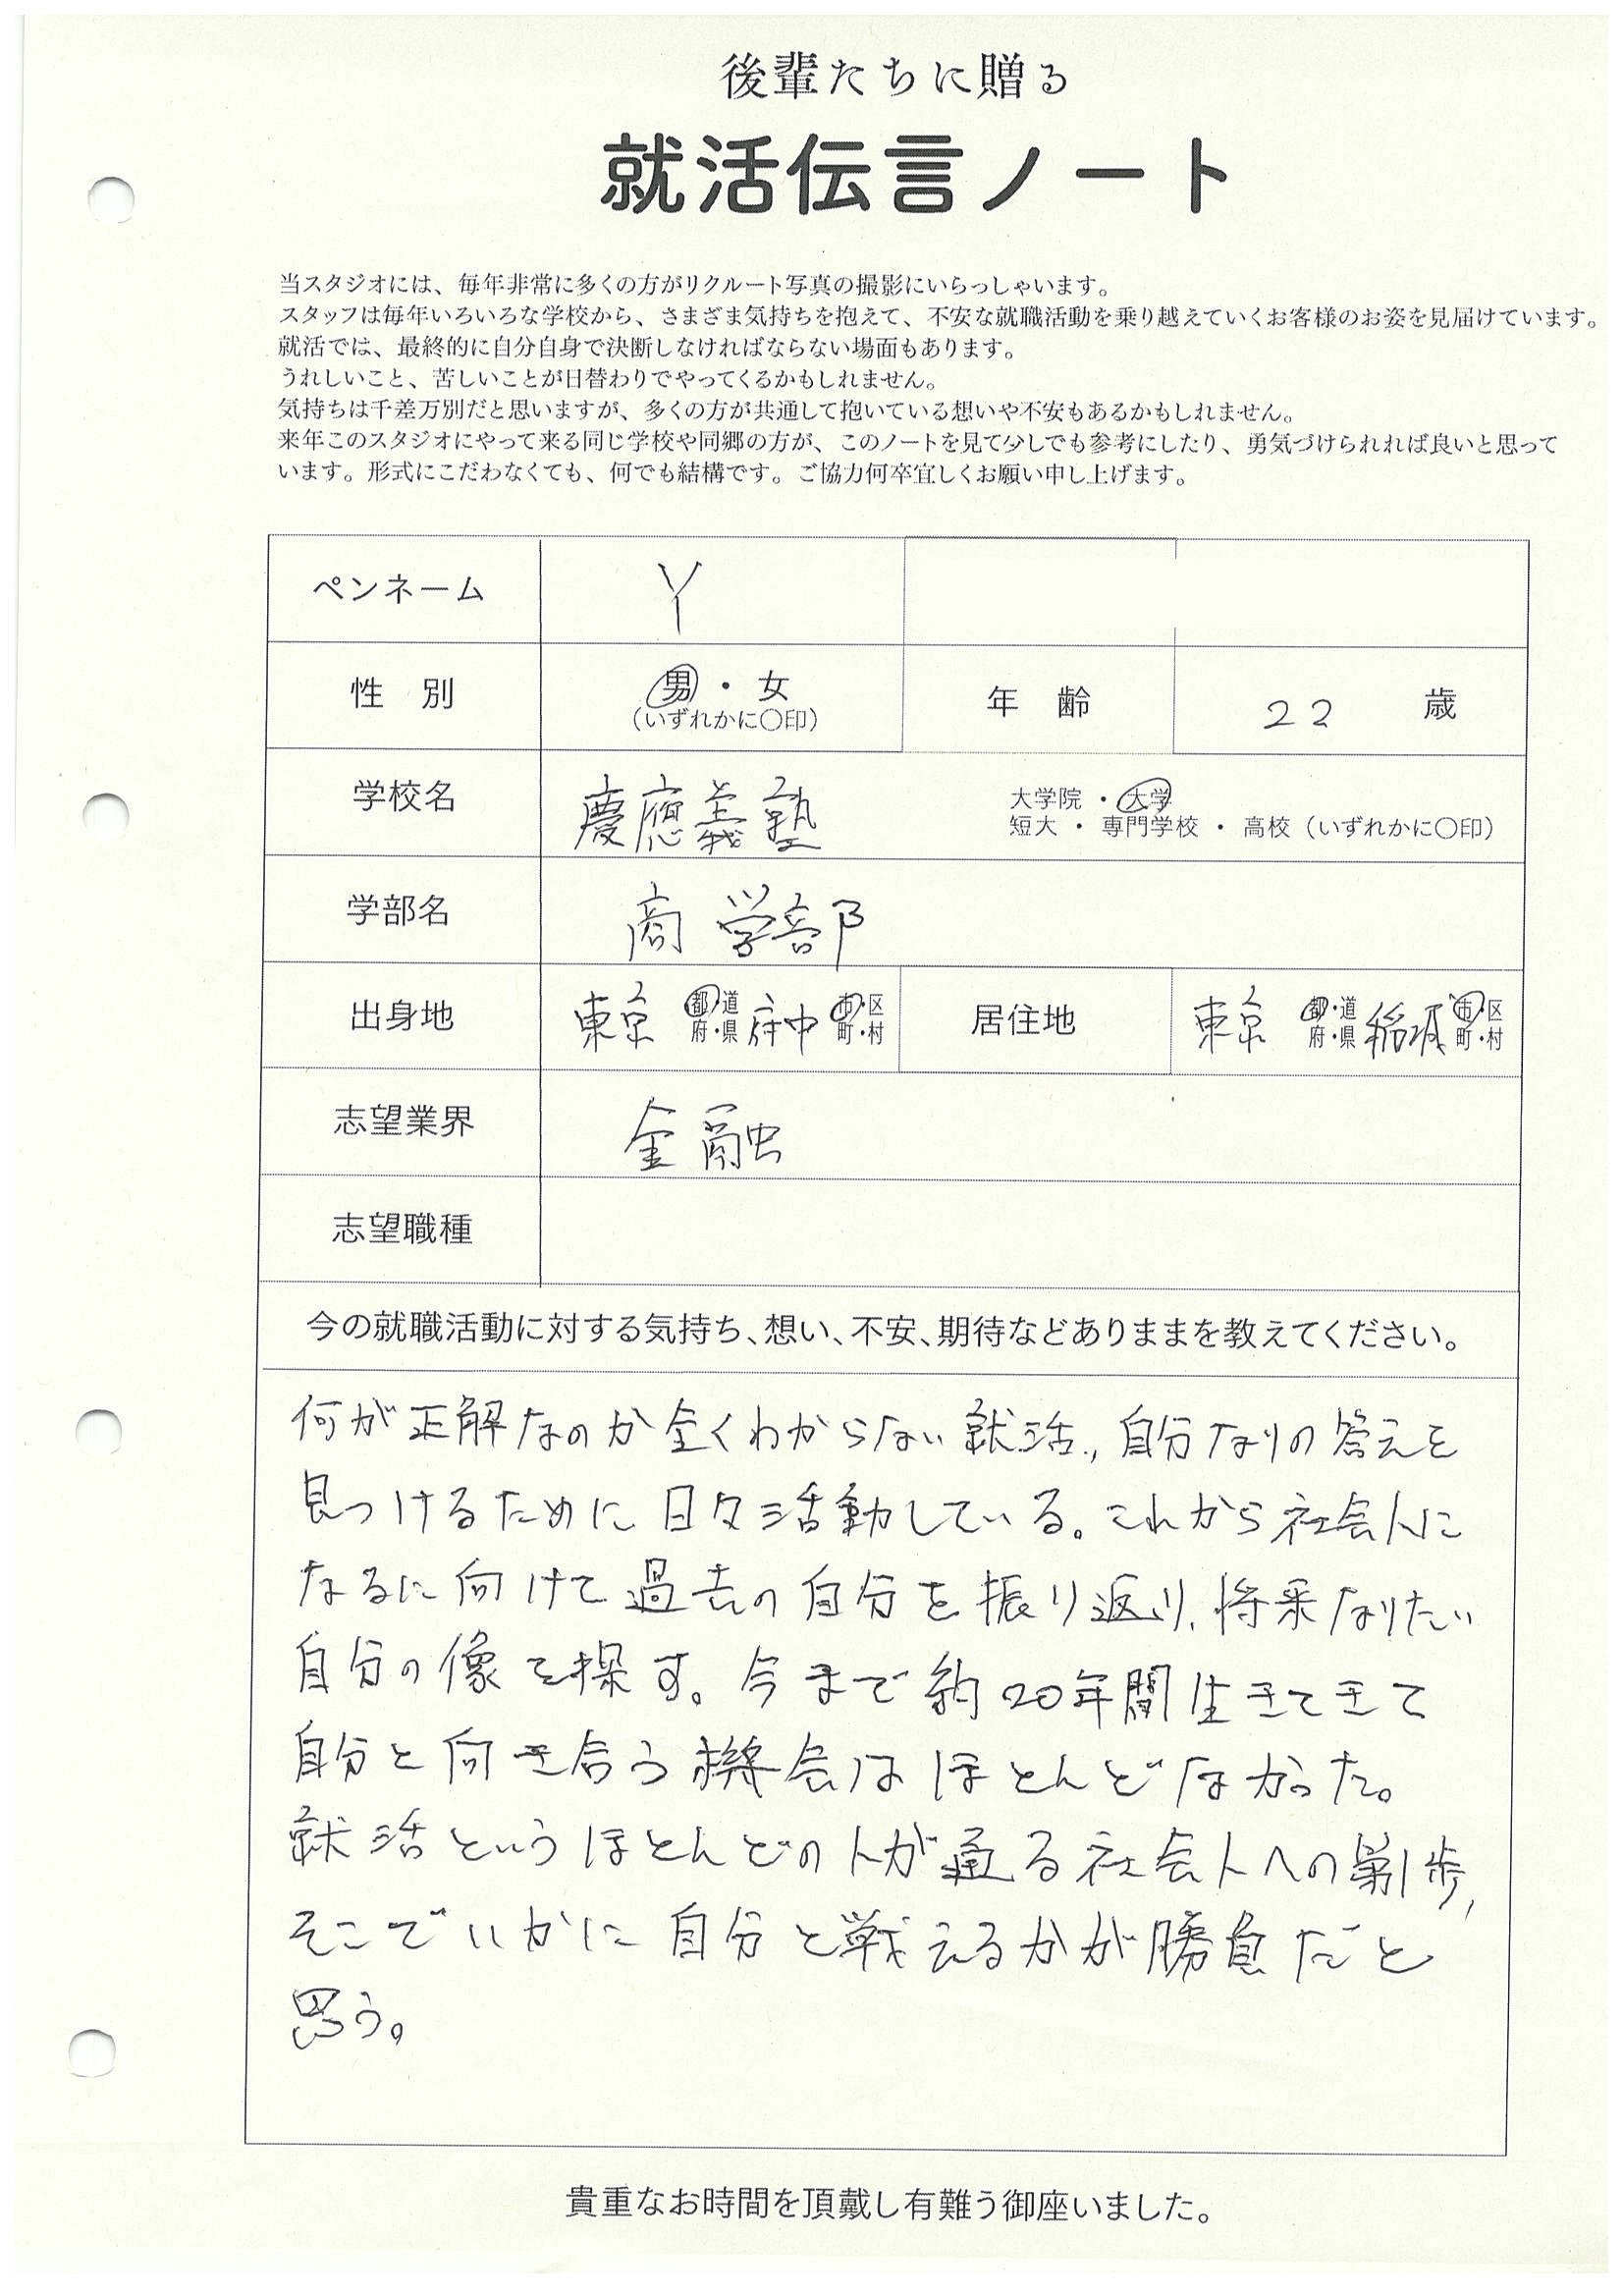 後輩たちに贈る
就活伝言ノート
当スタジオには、毎年非常に多くの方がリクルート写真の撮影にいらっしゃいます。
スタッフは毎年いろいろな学校から、さまざま気持ちを抱えて、不安な就職活動を乗り越えていくお客様のお姿を見届けています。
就活では、最終的に自分自身で決断しなければならない場面もあります。
うれしいこと、苦しいことが日替わりでやってくるかもしれません。
気持ちは千差万別だと思いますが、多くの方が共通して抱いている想いや不安もあるかもしれません。
来年このスタジオにやって来る同じ学校や同郷の方が、このノートを見て少しでも参考にしたり、勇気づけられれば良いと思って
います。形式にこだわなくても、何でも結構です。ご協力何卒宜しくお願い申し上げます。
ペンネーム Y
性 別 男・女 (いずれかに〇印) 年 齢 22 歳
学校名 慶應義塾 大学院・大学
短大・専門学校・高校(いずれかに〇印)
学部名 商学部
出身地 東京 都・道府・県 府中 市・区町・村 居住地 東京 都・道府・県 稲城 市・区町・村
志望業界 金融
志望職種
今の就職活動に対する気持ち、想い、不安、期待などありままを教えてください。
何が正解なのか全くわからない就活、自分なりの答えを
見つけるために日々活動している。これから社会人に
なるに向けて過去の自分を振り返り、将来なりたい
自分の像を探す。今まで約20年間生きてきて
自分と向き合う機会はほとんどなかった。
就活というほとんどの人が通る社会人への第1歩、
そこでいかに自分と戦えるかが勝負だと
思う。
貴重なお時間を頂戴し有難う御座いました。